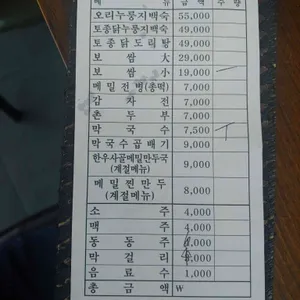 메 뉴 금 액 수 량
오리누룽지백숙 55,000
토종닭누룽지백숙 49,000
토종닭도리탕 49,000
보 쌈 大 29,000
보 쌈 小 19,000
메밀전병(총떡) 7,000
감 자 전 7,000
촌 두 부 7,000
막 국 수 7,500
막국수곱배기 9,000
한우사골메밀만두국
(계절메뉴) 9,000
메 밀 찐 만 두
(계절메뉴) 8,000
소 주 4,000
맥 주 4,000
동 동 주
막 걸 리
음 료 수 1,000
총 금 액 ₩